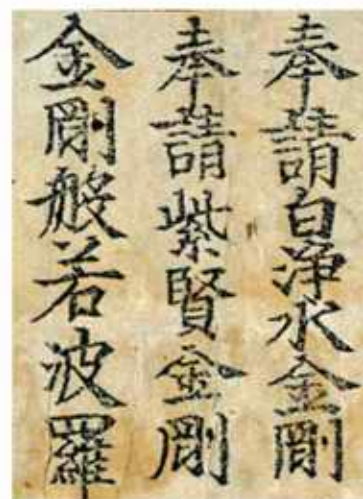 奉請白淨水金剛
奉請紫賢金剛
金剛般若波羅